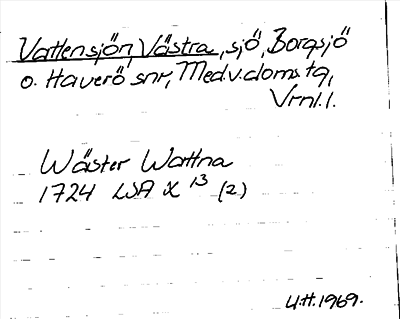 Vattensjön, Västra, sjö, Borgsjö
o. Haverö snr, Med.v.doms tg,
Vrnl.l.
Wäster Wattna
1724 LSA X 13 (2)
U.H. 1969.